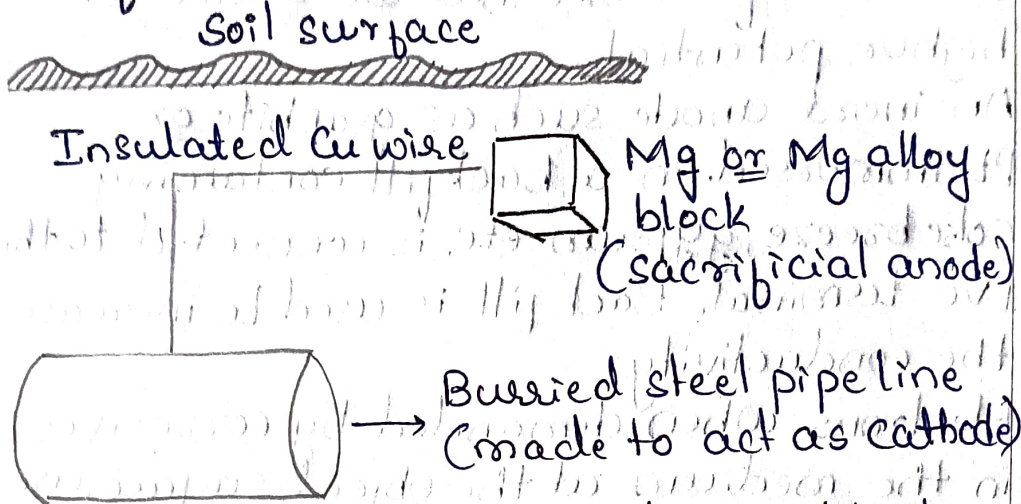 Soil surface
Insulated Cu wire
Mg or Mg alloy
block
(sacrificial anode)
Burried steel pipe line
(made to act as cathode)